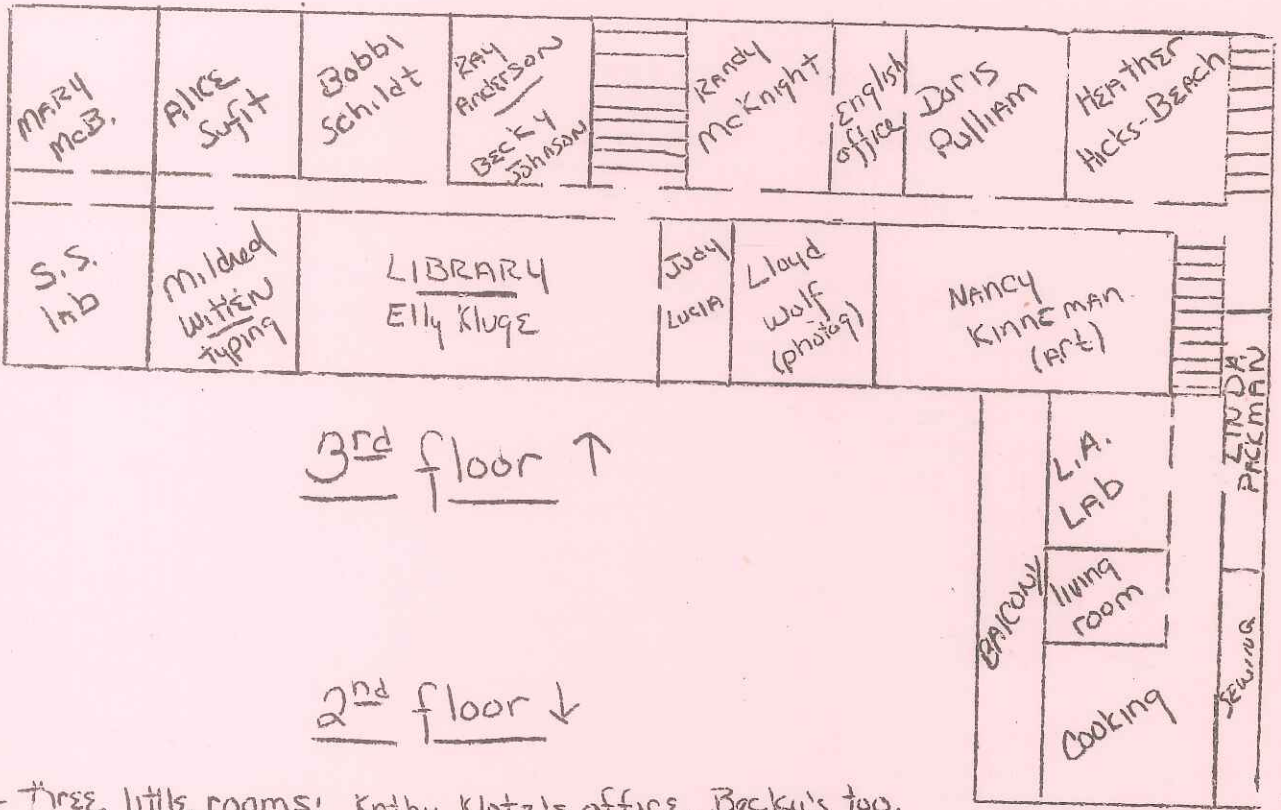 MARY
McB.
Alice
Sufit
Bobbi
Schildt
RAY
Anderson
BECKY
Johnson
Randy
McKnight
English
office
Doris
Pulliam
HEATHER
HICKS-BEACH
S.S.
lab
Mildred
WITTEN
typing
LIBRARY
Elly Kluge
Judy
Lucia
Lloyd
Wolf
(photog)
NANCY
KINNEMAN
(Art)
LINDA
PACKMAN
3rd floor ↑
L.A.
LAB
living
room
BALCONY
Cooking
SEWING
2nd floor ↓
three little rooms: Kathy Klotz's office, Becky's too,